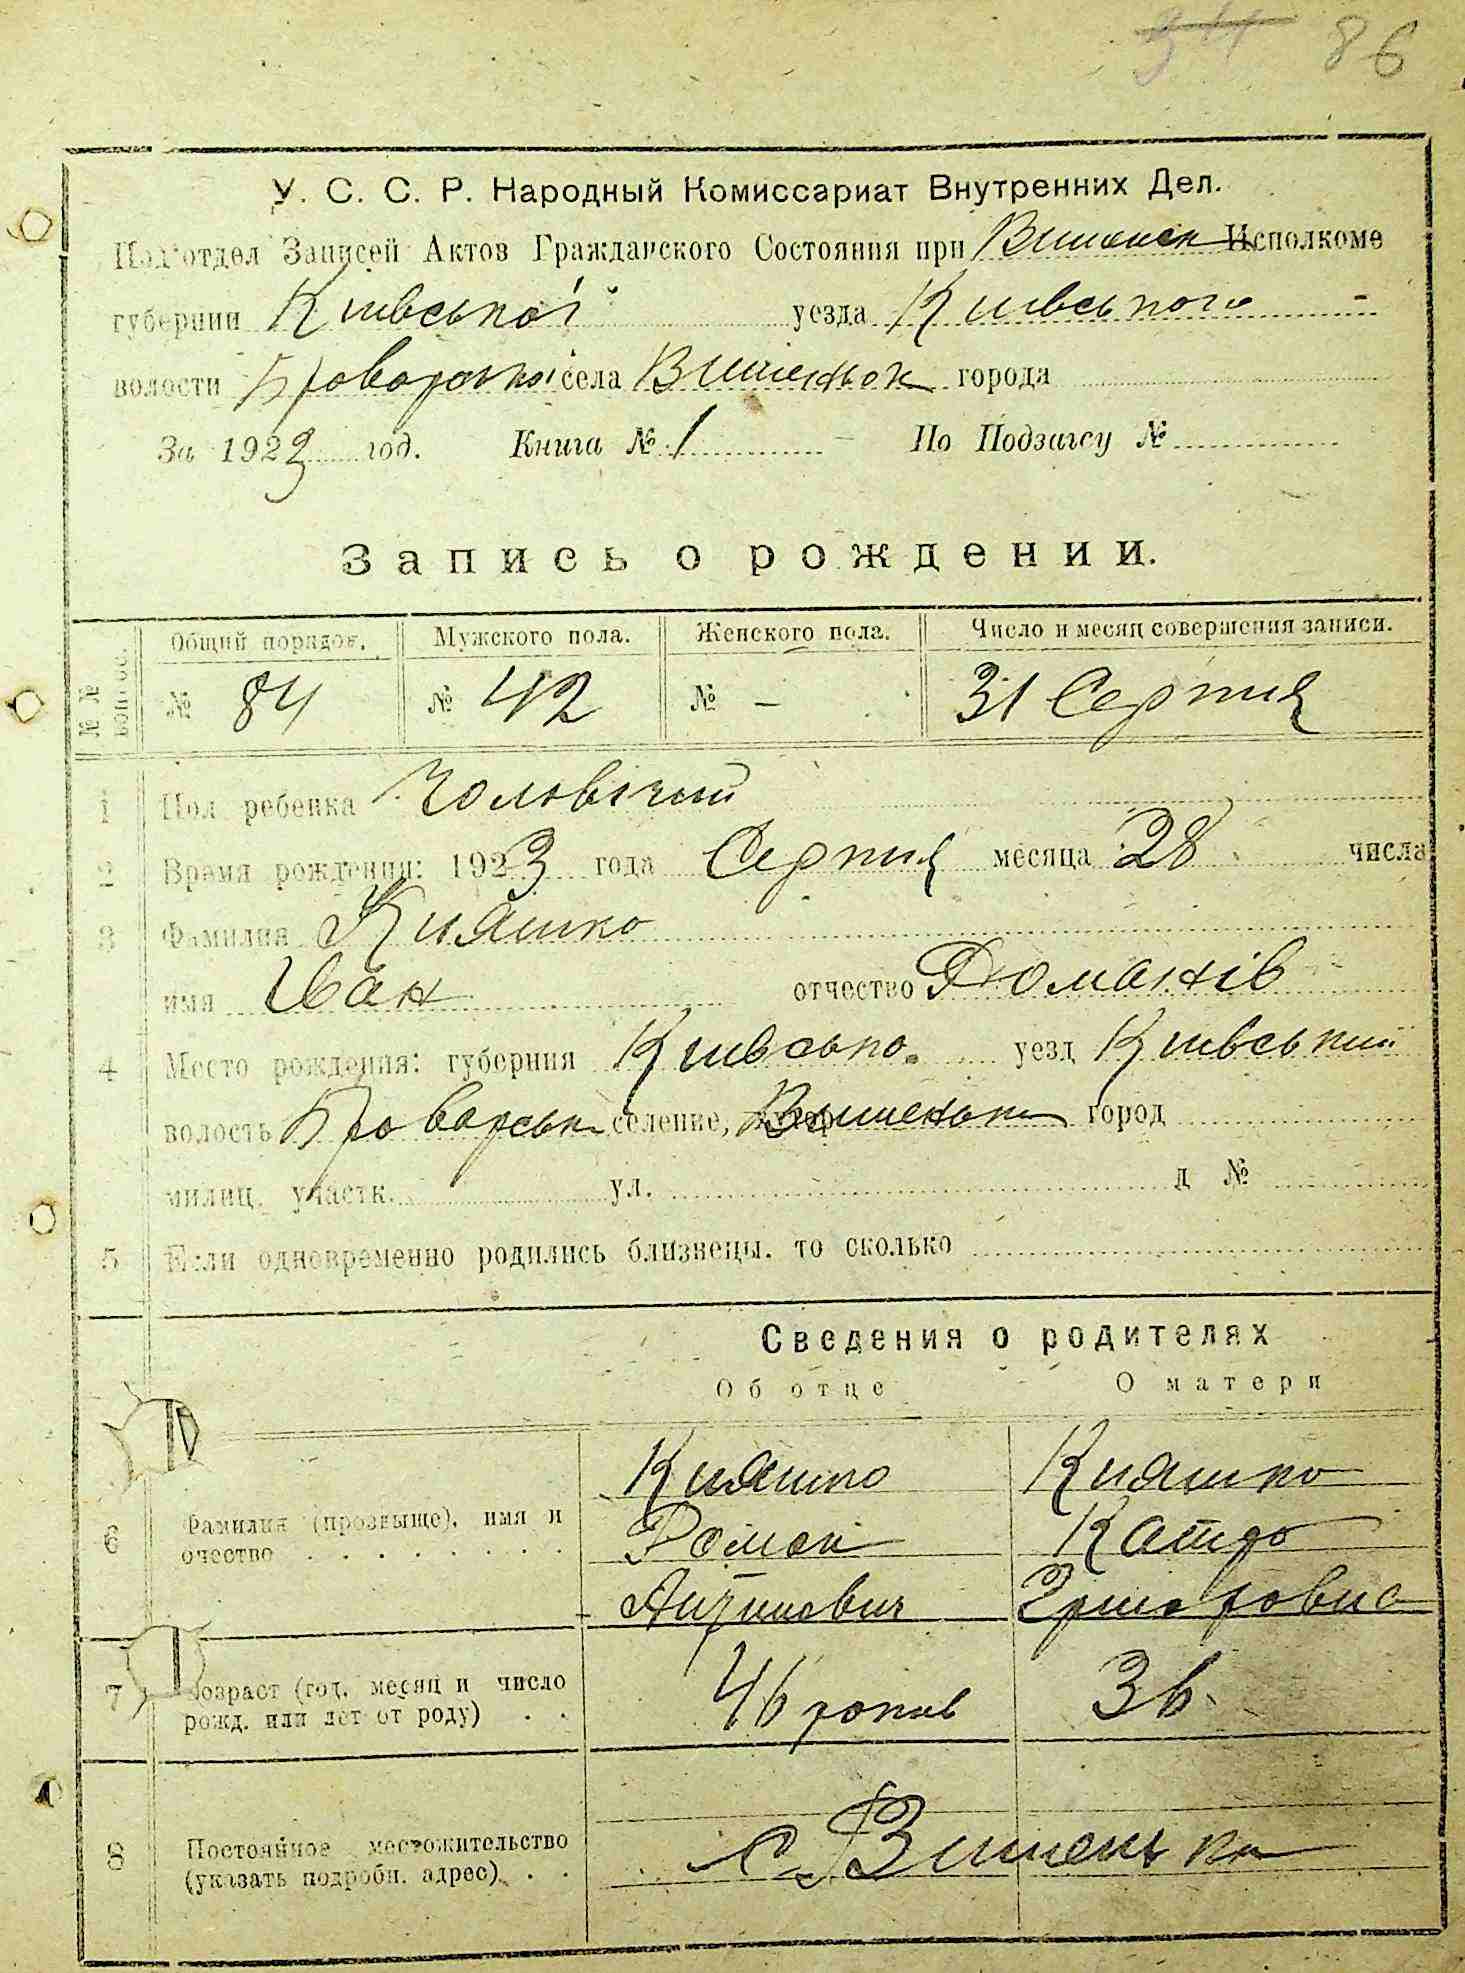 54 86
У. С. С. Р. Народный Комиссариат Внутренних Дел.
Под'отдел Записей Актов Гражданского Состояния при Вишеньк Исполкоме
губернии Київської уезда Київського
волости Броварської села Вишеньок города
За 1923 год. Книга № 1 По Подзагсу №
Запись о рождении.
№ № вопрос. Общий порядов. Мужского пола. Женского пола. Число и месяц совершения записи.
№ 84 № 42 № - 31 Серпня
1 Пол ребенка Чоловічий
2 Время рождения: 1923 года Серпня месяца 28 числа
3 Фамилия Кияшко
имя Іван отчество Романів
4 Место рождения: губерния Київсько. уезд Київський
волость Броварськ селение, Вишеньки город
милиц. участк. ул. д №
5 Если одновременно родились близнецы. то сколько
Сведения о родителях
Об отце О матери
Кияшко Кияшко
6 Фамилия (прозвыще), имя и Роман Катря
очество
7 Возраст (год, месяц и число 46 років 36.
рожд. или лет от роду)
8 Постоянное местожительство с Вишеньки
(указать подробн. адрес)